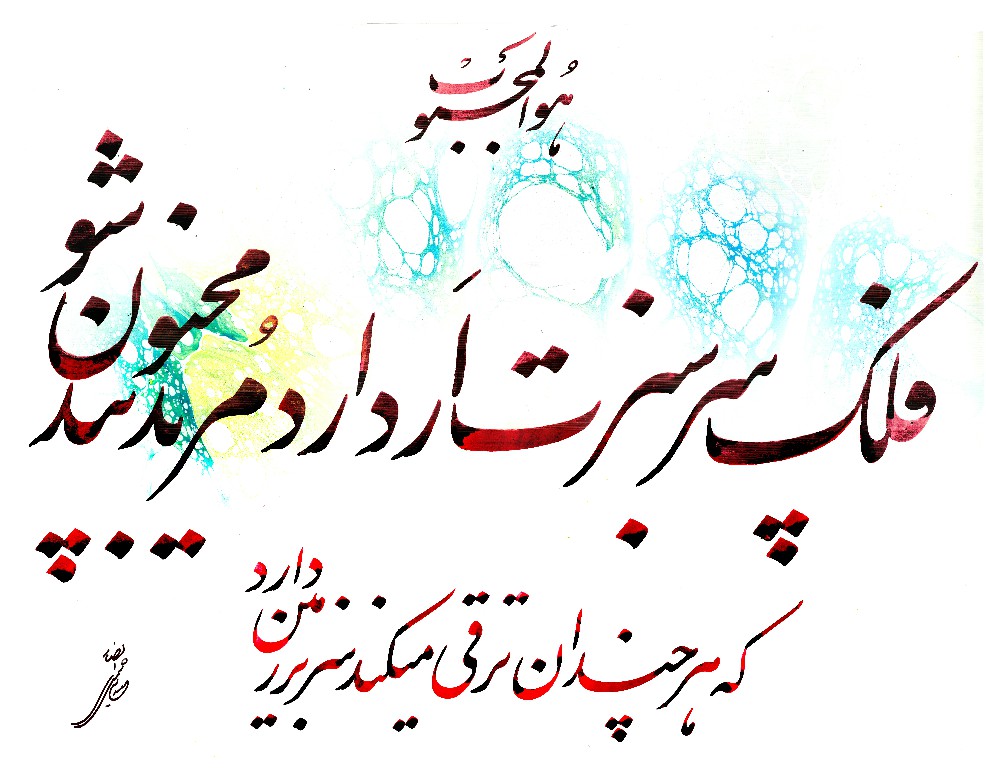 هوالمحبوب
فلک سرسبزت اَر دارد مُرید بید مجنون شو
که هر چندان ترقی میکند سر بر زمین دارد